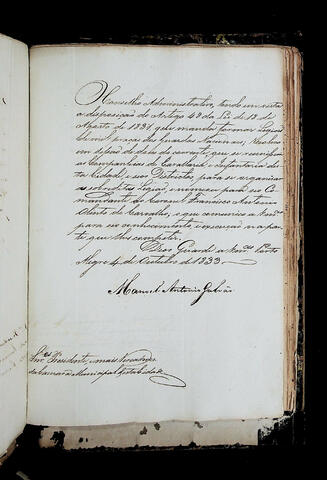 O Conselho Administractivo, tendo em vista
a disposição do Artigo 48 da Lei de 18 de
Agosto de 1831, que manda formar Legiões
de mil praças das Guardas Nacionaes; Resolveo
em Sessão de do corrente, que se reunissem
as Companhias de Cavallaria e Infantaria des
ta Cidade, e seos Districtos para se organizar
a sobredita Legião, e nomeou para seo Com
mandante ao Coronel Francisco Xavier
de Carvalho, o que communico a
para seo conhecimento, e execução na par
te, que lhes competir.
Deos Guarde a Porto
Alegre 4 de Outubro de 1833.
Manoel Antonio Galvão
Snres. Presidente, e mais Vereadores
da Camara Municipal desta Cidade